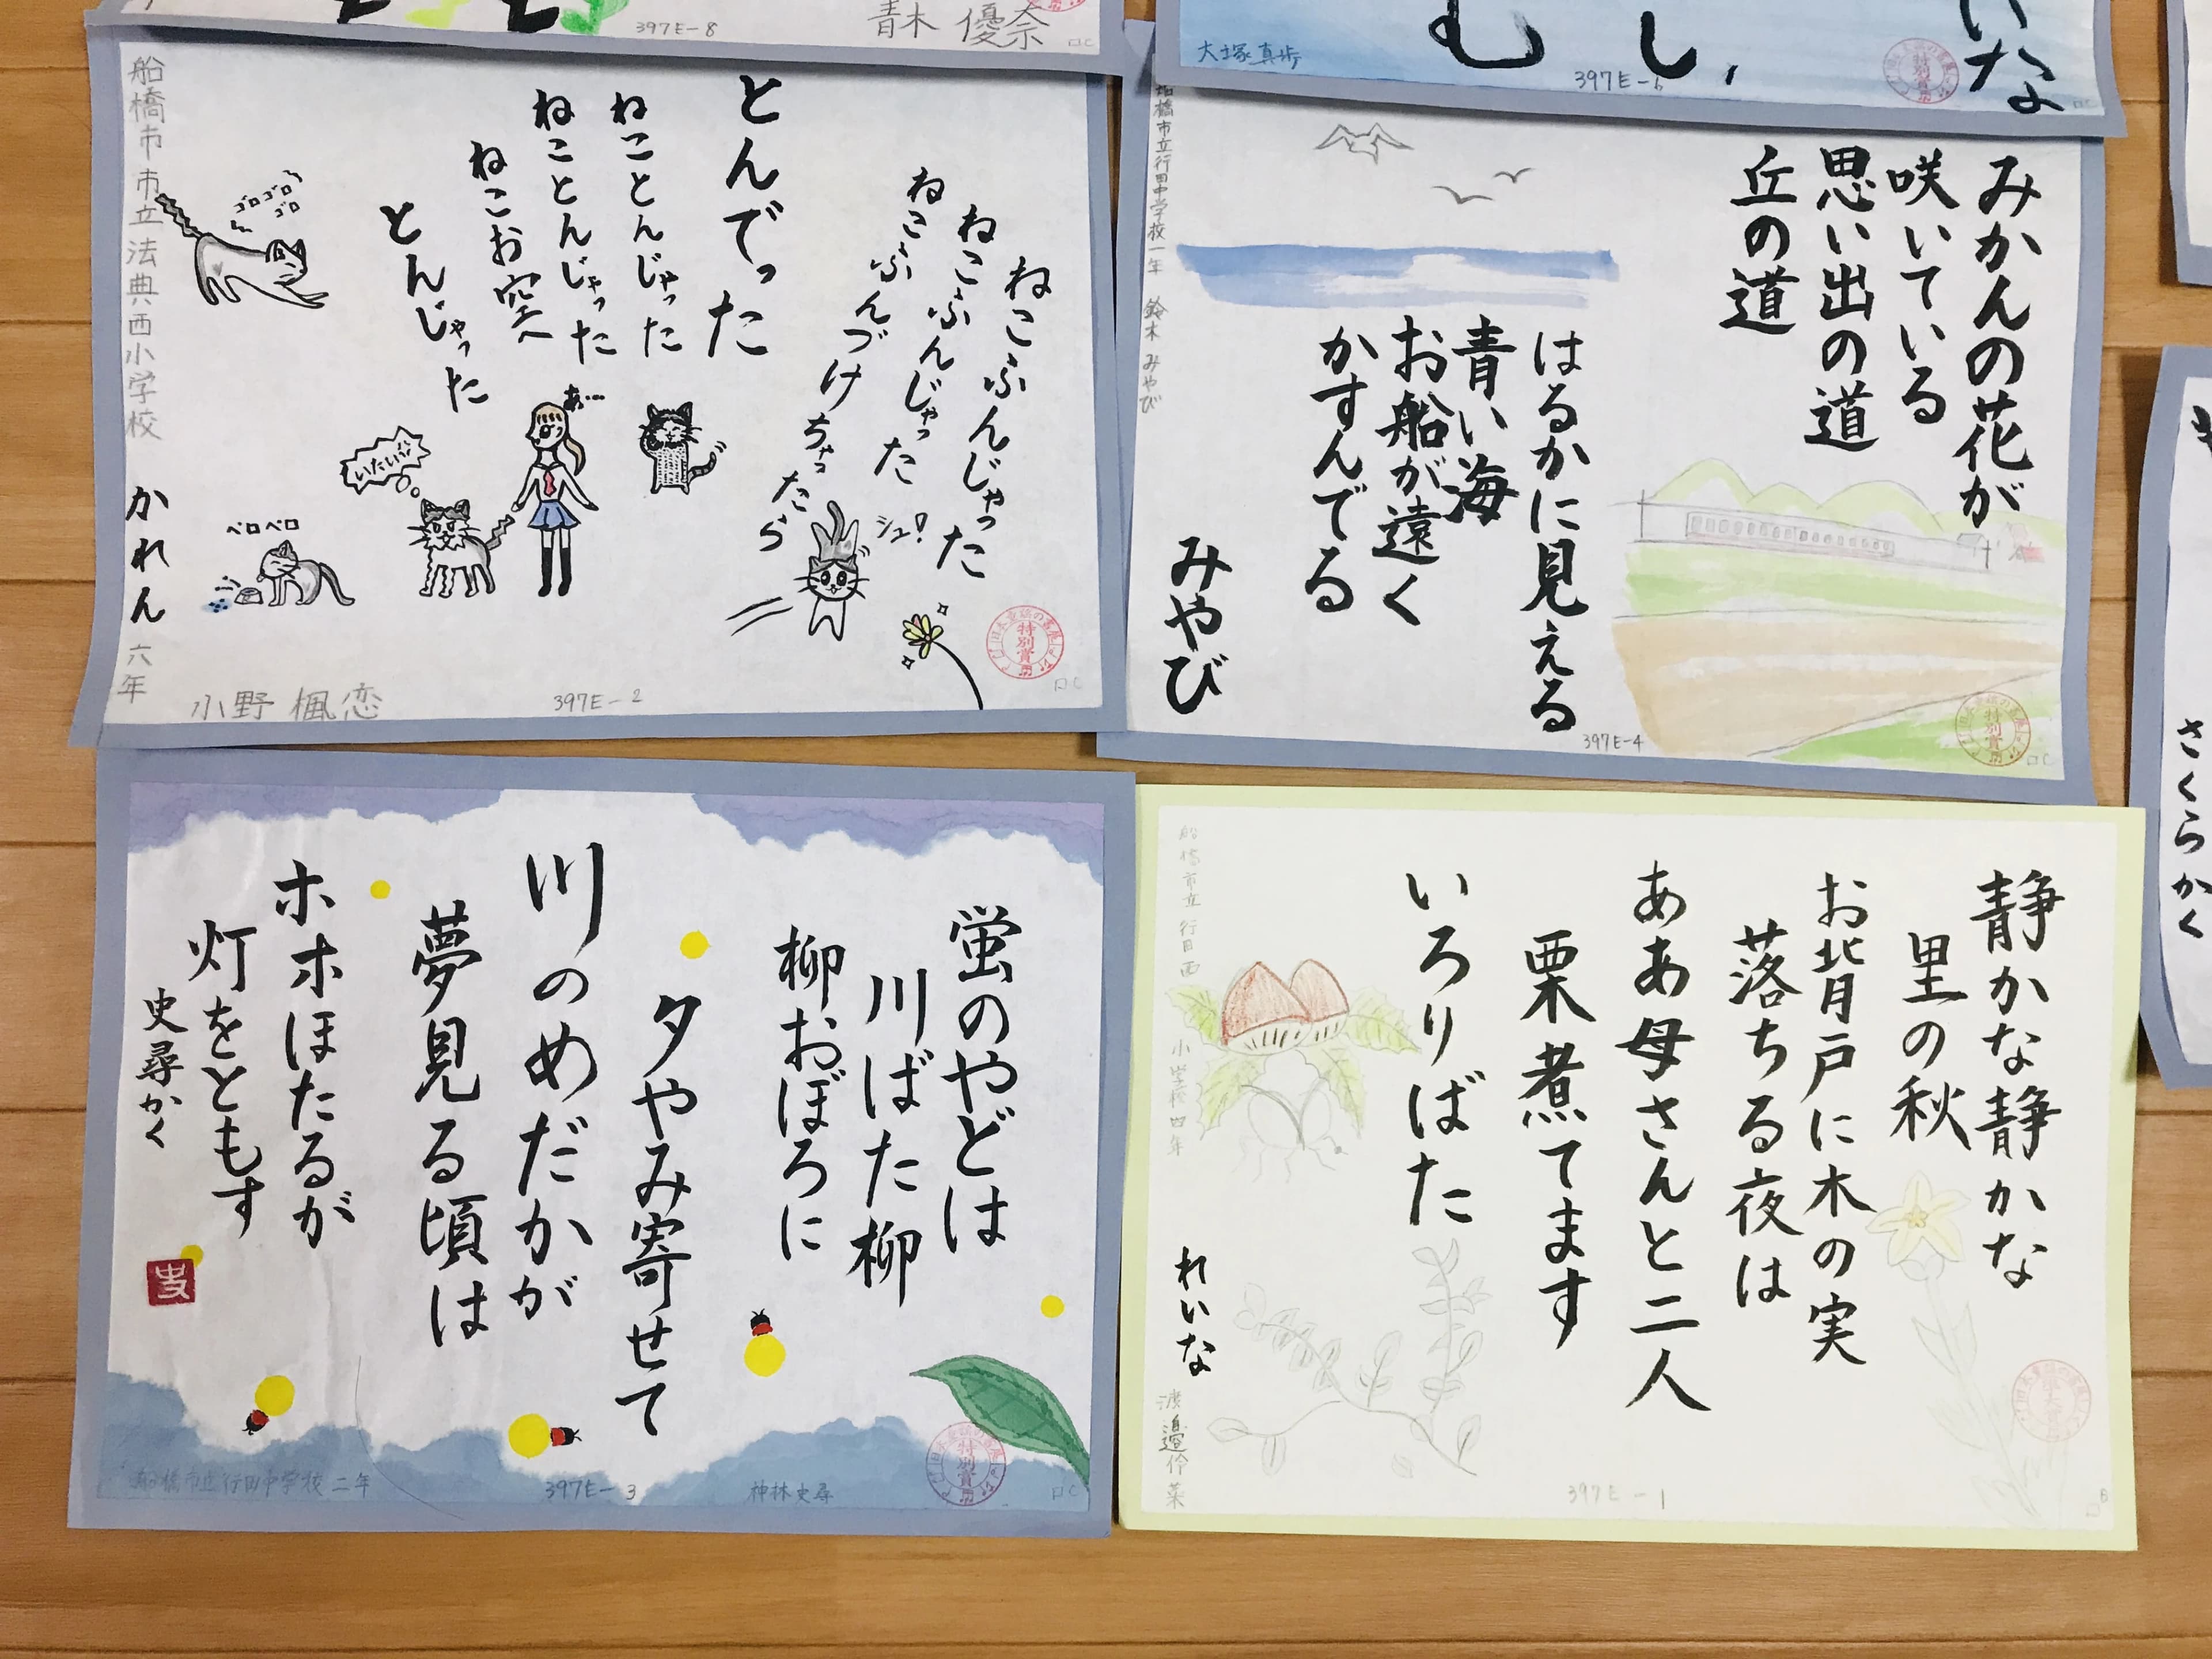 397E-8
青木 優奈
大塚真歩
むし,
いな
397E-6
特別賞
ねこふんじゃった
ねこふんじゃった
ねこふんづけちゃったら
とんでった
ねことんじゃった
ねことんじゃった
ねこお空へ
とんじゃった
ゴロゴロ
ゴロ
あ…
いたい
シュ!
ペロペロ
船橋市市立法典西小学校 かれん 六年
小野 楓恋
397E-2
特別賞
みかんの花が
咲いている
思い出の道
丘の道
はるかに見える
青い海
お船が遠く
かすんでる
みやび
船橋市立行田中学校一年 鈴木 みやび
397E-4
特別賞
蛍のやどは
川ばた柳
柳おぼろに
夕やみ寄せて
川のめだかが
夢見る頃は
ホホほたるが
灯をともす
史尋かく
船橋市立行田中学校二年
397E-3
神林史尋
特別賞
静かな静かな
里の秋
お背戸に木の実
落ちる夜は
ああ母さんと二人
栗煮てます
いろりばた
れいな
船橋市立行田西小学校四年
渡邉伶菜
397E-1
さくらかく